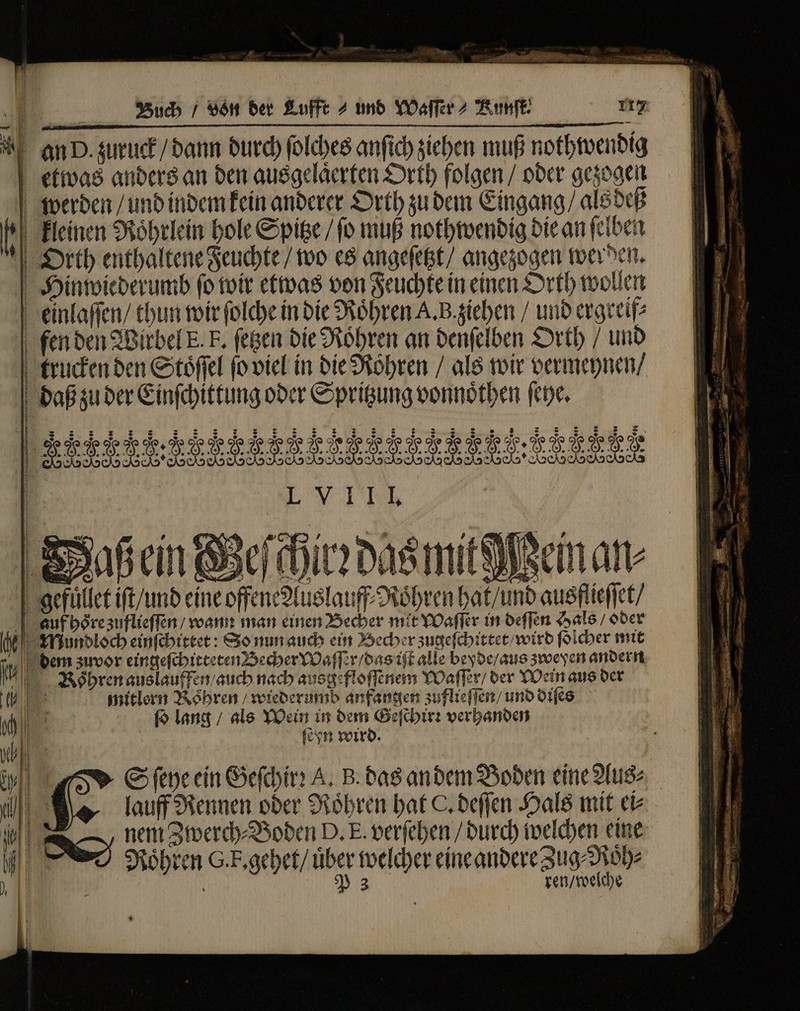 Buch / von der Lufft ⸗ und Waſſer ⸗ Kunſt. 117
an D. zuruck / dann durch ſolches anſich ziehen muß nothwendig
etwas anders an den ausgelaͤerten Orth folgen / oder gezogen
werden / und indem kein anderer Orth zu dem Eingang / als deß
kleinen Roͤhrlein hole Spitze / ſo muß nothwendig die an ſelben
Orth enthaltene Feuchte / wo es angeſetzt / angezogen werden.
Hinwiederumb ſo wir etwas von Feuchte in einen Orth wollen
einlaſſen / thun wir ſolche in die Roͤhren A.B. ziehen / und ergreif⸗
fen den Wirbel E. F. ſetzen die Roͤhren an denſelben Orth / und
trucken den Stoͤſſel ſo viel in die Roͤhren / als wir vermeynen /
daß zu der Einſchittung oder Spritzung vonnoͤthen ſeye.
LVIII.
Daß ein Geſchirꝛ das mit Wein an⸗
gefuͤllet iſt / und eine offene Auslauff⸗Roͤhren hat / und ausflieſſet /
auf hoͤre zuflieſſen / wann man einen Becher mit Waſſer in deſſen Hals / oder
Mundloch einſchittet : So nun auch ein Becher zugeſchittet wird ſolcher mit
dem zuvor eingeſchitteten Becher Waſſer / das iſt alle beyde / aus zweyen andern
Roͤhren auslauffen / auch nach ausgefloſſenem Waſſer / der Wein aus der
mitlern Roͤhren / wiederumb anfangen zuflieſſen / und diſes
ſo lang / als Wein in dem Geſchirꝛ verhanden
ſeyn wird.
ES ſeye ein Geſchirꝛ A. B. das an dem Boden eine Aus⸗
lauff Rennen oder Roͤhren hat C. deſſen Hals mit ei⸗
nem Zwerch⸗Boden D. E. verſehen / durch welchen eine
Roͤhren G.F. gehet / uͤber welcher eine andere Zug⸗Roͤh⸗
P 3 ren / welche